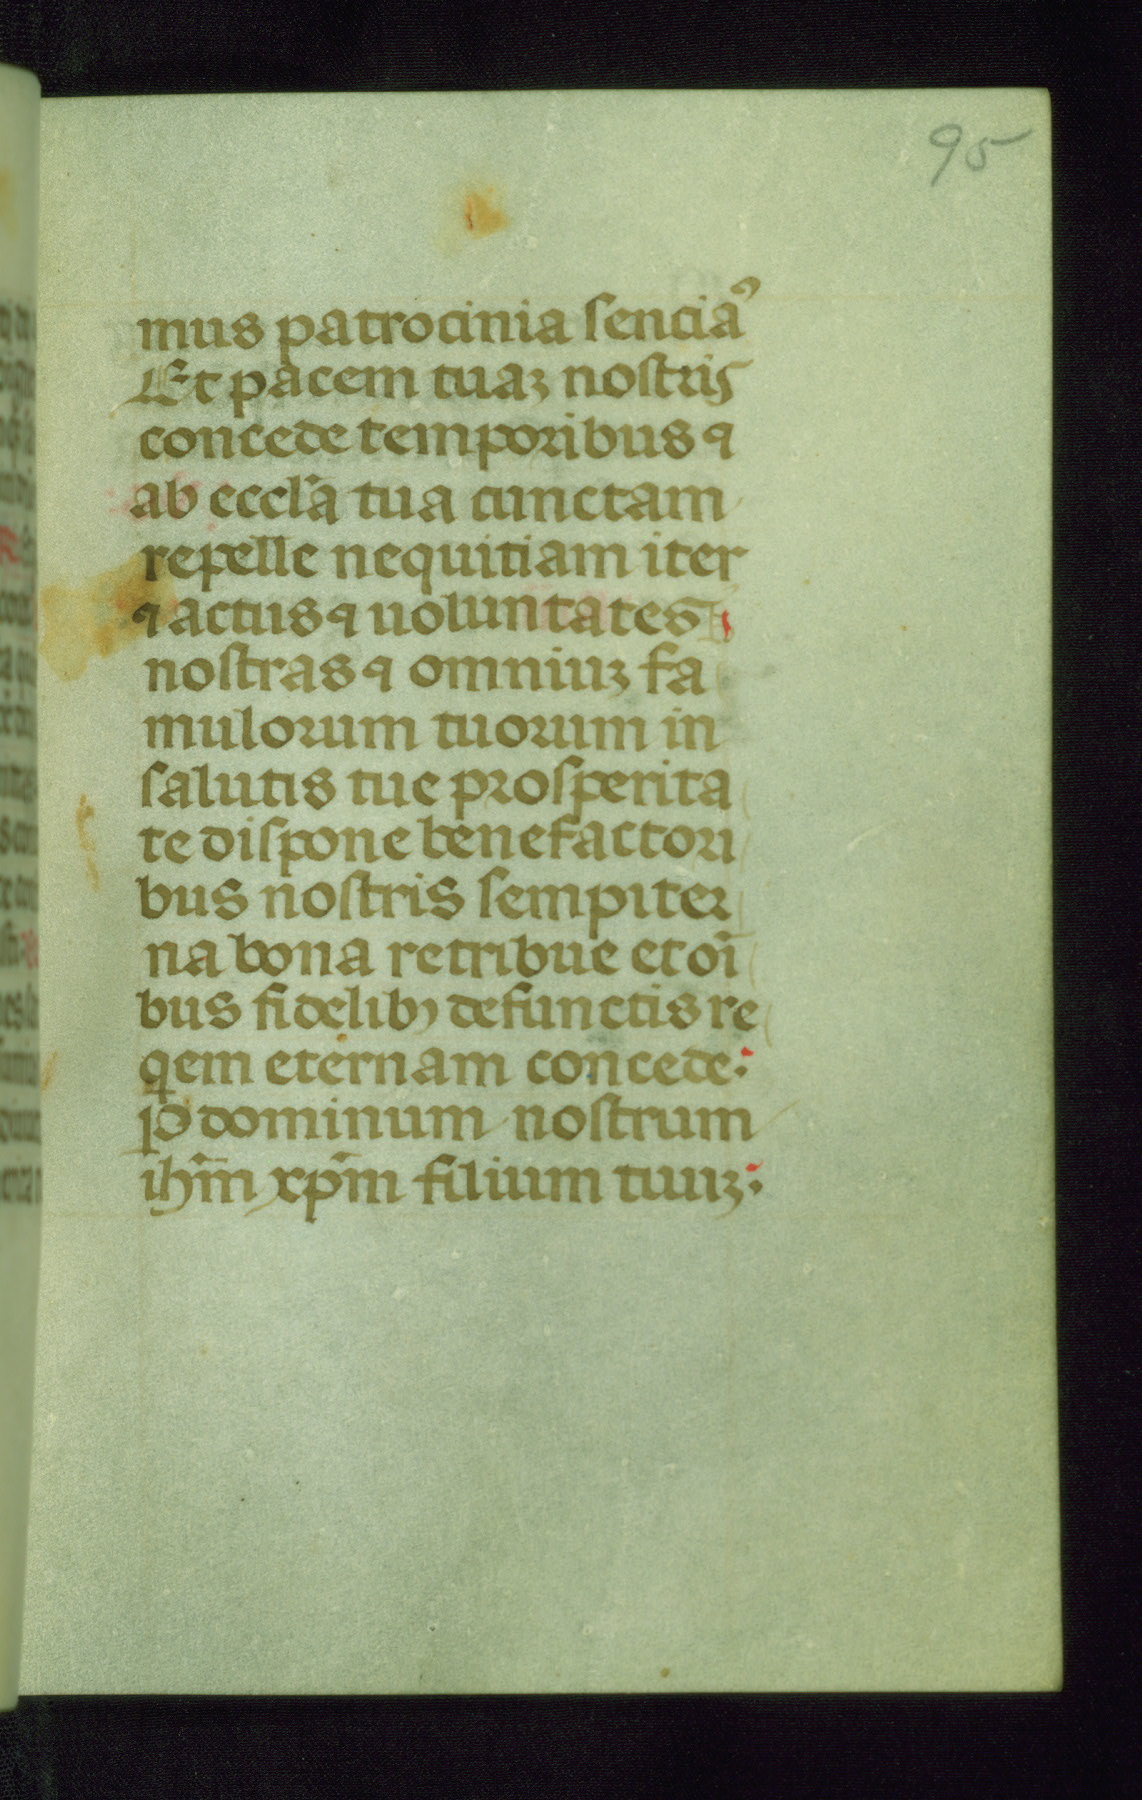 95
mus patrocinia senciaꝰ
Et pacem tuaꝫ nostris
concede temporibus ꝯ
ab eccl̃a tua cunctam
repelle nequitiam iter
ꝯ actus ꝯ uoluntates
nostras ꝯ omniuꝫ fa
mulorum tuorum in
salutis tue prosperita
te dispone benefactori
bus nostris sempiter
na bona retribue et oĩ
bus fidelibꝰ defunctis re
q̃em eternam concede:
P dominum nostrum
ihm̃ xp̃m filium tuuꝫ: